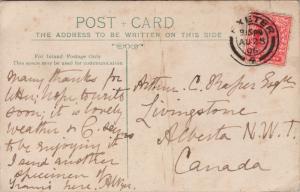 POST CARD
THE ADDRESS TO BE WRITTEN ON THIS SIDE
For Inland Postage Only
This space may be used for communication.
EXETER
AU 25
06
Many thanks for
letter. Hope to write
soon; it is lovely
weather &
to be enjoying it
I send another
specimen of
trams here.
Arthur C. Draper Esq
Livingstone
Alberta N.W.T.
Canada